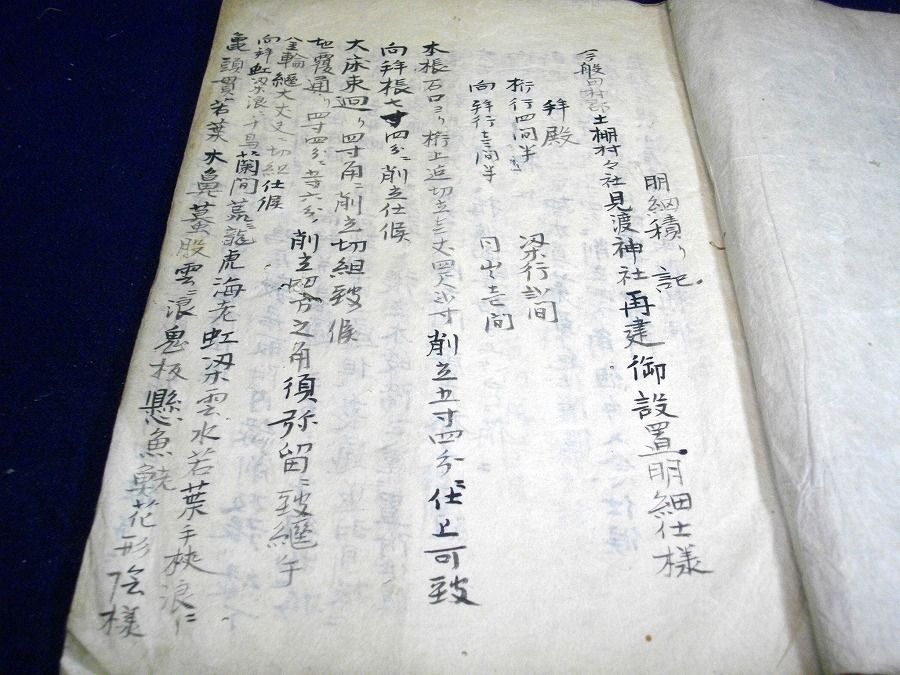 明細積り記
今般田村郡土棚村々社見渡神社再建御設置明細仕様
拝殿
桁行四間半 梁行弐間
向拝行壱間半 同出壱間
木振石口ヨリ桁上迄切立壱丈四尺 寸削立五寸四分ニ仕上可致
向拝振七寸四分ニ削立仕候
大床束廻り四寸角ニ削立切組致候
地覆通り四寸四分ニ 寸六分削立 分之角須弥留ニ致継手
台輪継大丈夫ニ切組仕候
向拝虹梁浪ニ千鳥蘭間 龍虎海老虹梁雲水若葉手挾浪ニ
亀頭貫若葉木鼻蟇股雲ニ浪鬼板懸魚鰭花形陰様